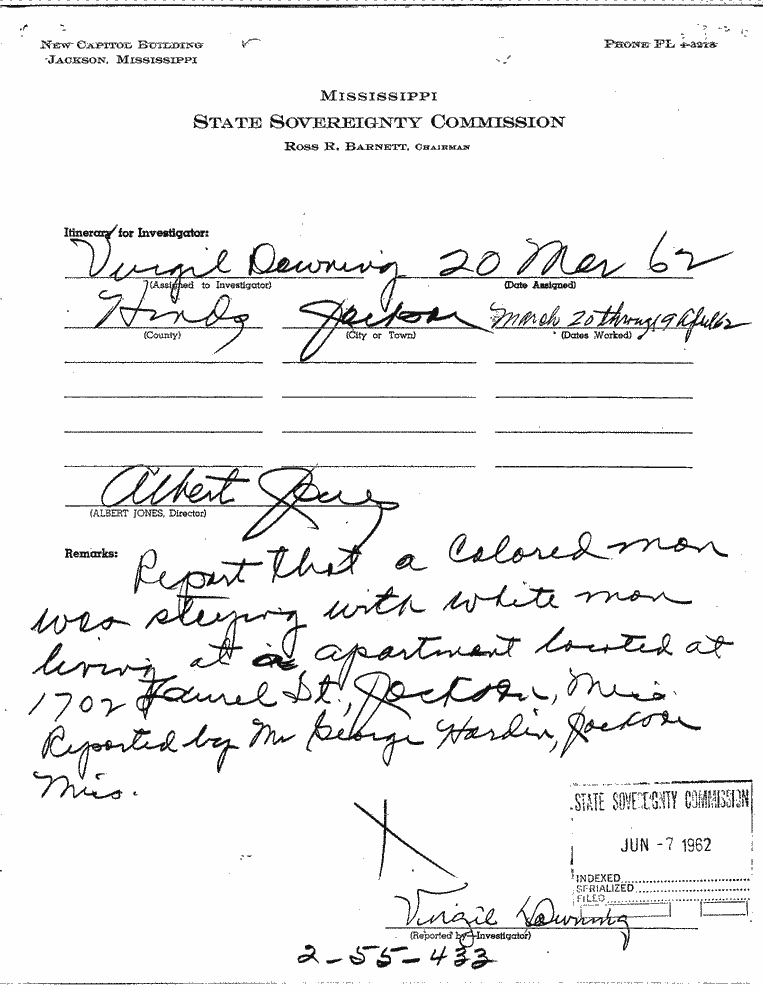 NEW CAPITOL BUILDING
JACKSON, MISSISSIPPI
PHONE FL 4-3218
MISSISSIPPI
STATE SOVEREIGNTY COMMISSION
ROSS R. BARNETT, CHAIRMAN
Itinerary for Investigator:
Virgil Downing 20 Mar 62
(Assigned to Investigator) (Date Assigned)
Hinds Jackson March 20 through 9 April 62
(County) (City or Town) (Dates Worked)
Albert Jones
(ALBERT JONES, Director)
Remarks: Report that a colored man
was sleeping with white man
living at a apartment located at
1702 Laurel St., Jackson, Miss.
Reported by Mr George Hardin, Jackson
Miss.
STATE SOVEREIGNTY COMMISSION
JUN -7 1962
INDEXED
SERIALIZED
FILED
Virgil Downing
(Reported by Investigator)
2-55-433